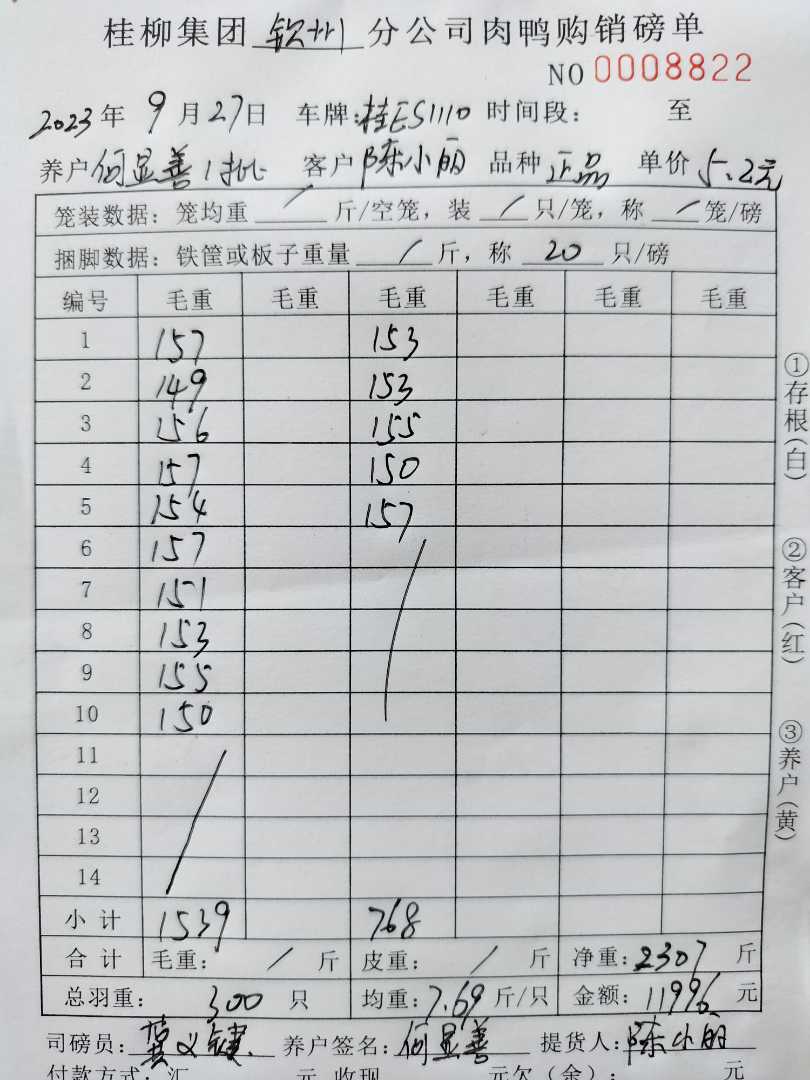 桂柳集团 钦州 分公司肉鸭购销磅单
NO 0008822
2023年 9 月 27日 车牌:桂ES1110 时间段: 至
养户 何显善1批 客户 陈小丽 品种 正品 单价 5.2元
笼装数据: 笼均重 / 斤/空笼, 装 / 只/笼, 称 / 笼/磅
捆脚数据: 铁筐或板子重量 / 斤, 称 20 只/磅
编号 毛重 毛重 毛重 毛重 毛重 毛重
1 157 153
2 149 153
3 156 155
4 157 150
5 154 157
6 157
7 151
8 153
9 155
10 150
11
12
13
14
小计 1539 768
合计 毛重: / 斤 皮重: / 斤 净重: 2307 斤
总羽重: 300 只 均重: 7.69 斤/只 金额: 11996 元
司磅员: 义键 养户签名: 何显善 提货人: 陈小丽
付款方式: 汇 元 收现 元欠(余):
①存根(白)
②客户(红)
③养户(黄)